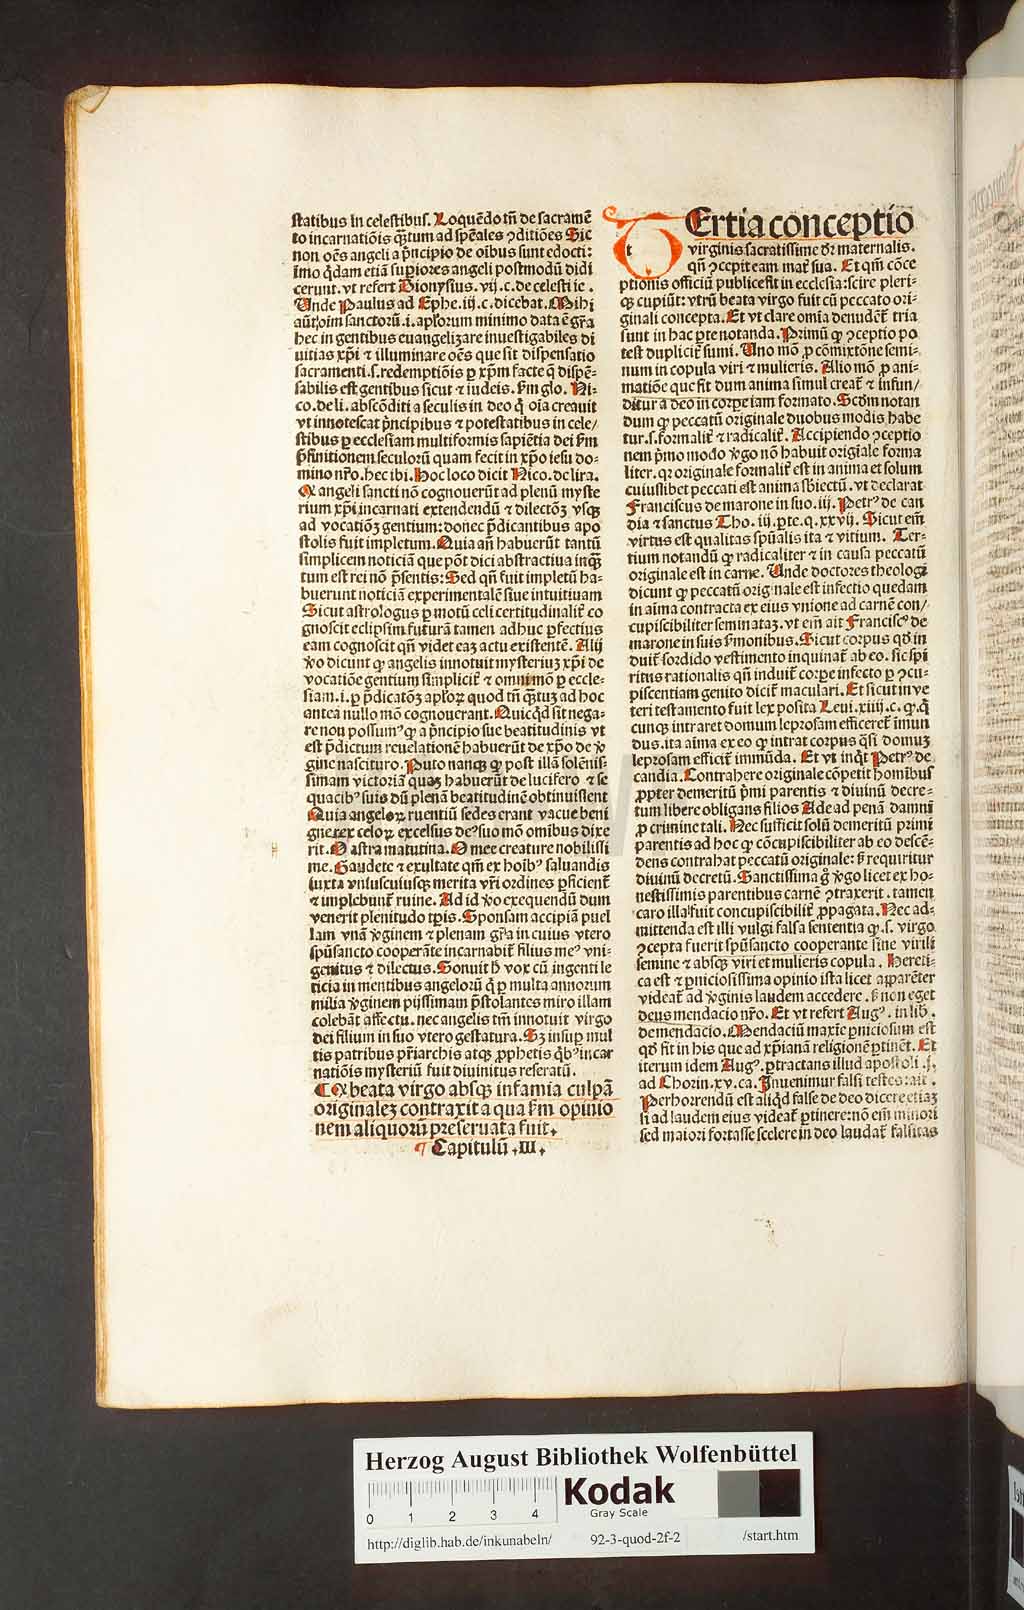 statibus in celestibus. Loquẽdo tñ de sacramẽ
to incarnatiõis q̃tum ad sp̃eales ꝯditiões Sic
non oẽs angeli a p̃ncipio de oĩbus sunt edocti:
imo q̃dam etiã suꝑiores angeli postmodũ didi
cerunt. vt refert Dionysius. vij. c. de celesti ie.
Unde Paulus ad Ephe. iij. c. dicebat. Mihi
aũt oim sanctorũ. i. apl̃orum minimo data ẽ gr̃a
hec in gentibus euangelizare inuestigabiles di
uitias xp̃i ⁊ illuminare oẽs que sit dispensatio
sacramenti. s. redemptiõis ꝑ xp̃m facte q̃ dispẽ-
sabilis est gentibus sicut ⁊ iudeis. ẜm glo. Ni-
co. de li. abscõditi a seculis in deo q̃ oĩa creauit
vt innotescat p̃ncipibus ⁊ potestatibus in cele/
stibus ꝑ ecclesiam multiformis sapiẽtia dei ẜm
p̃finitionem seculorũ quam fecit in xp̃o iesu do-
mino nr̃o. hec ibi. Hoc loco dicit Nico. de lira.
Qꝫ angeli sancti nõ cognouerũt ad plenũ myste
rium xp̃i incarnati extendendũ ⁊ dilectõꝫ vsqꝫ
ad vocatiõꝫ gentium: donec p̃dicantibus apo
stolis fuit impletum. Quia añ habuerũt tantũ
simplicem noticiã que põt dici abstractiua inqꝫ
tum est rei nõ p̃sentis: Sed qñ fuit impletũ ha-
buerunt noticiã experimentalẽ siue intuitiuam
Sicut astrologus ꝑ motũ celi certitudinalit̃ co
gnoscit eclipsim futurã tamen adhuc ꝑfectius
eam cognoscit qñ videt eaꝫ actu existentẽ. Alij
ꝟo dicunt ꝙ angelis innotuit mysteriuꝫ xp̃i de
vocatiõe gentium simplicit̃ ⁊ omnimõ ꝑ eccle-
siam. i. ꝑ p̃dicatõꝫ apl̃oꝝ quod tñ q̃tuꝫ ad hoc
antea nullo mõ cognouerant. Quicq̃d sit nega-
re non possumꝰ ꝙ a p̃ncipio sue beatitudinis vt
est p̃dictum reuelationẽ habuerũt de xp̃o de ꝟ
gine nascituro. Puto nanqꝫ ꝙ post illã solẽnis-
simam victoriã quaꝫ habuerũt de lucifero ⁊ se
quacibꝰ suis dũ plenã beatitudinẽ obtinuissent
Quia angeloꝝ ruentiũ sedes erant vacue beni
gne rex celoꝝ excelsus deꝰ suo mõ omĩbus dixe
rit. O astra matutina. O mee creature nobilissi
me. Gaudete ⁊ exultate qm̃ ex hoĩbꝰ saluandis
iuxta vniuscuiusqꝫ merita vr̃i ordines ꝑficient̃
⁊ implebunt̃ ruine. Ad id ꝟo exequendũ dum
venerit plenitudo tp̃is. Sponsam accipiã puel
lam vnã ꝟginem ⁊ plenam gr̃a in cuius vtero
sp̃usancto cooperãte incarnabit̃ filius meꝰ vni-
genitus ⁊ dilectus. Sonuit h̃ vox cũ ingenti le
ticia in mentibus angelorũ q̃ ꝑ multa annorum
milia ꝟginem pijssimam p̃stolantes miro illam
colebãt affectu. nec angelis tm̃ innotuit virgo
dei filium in suo vtero gestatura. Sꝫ insuꝑ mul
tis patribus pr̃iarchis atqꝫ ꝓphetis q̃bꝰ incar
nationis mysteriũ fuit diuinitus reseratũ.
¶ Qꝫ beata virgo absqꝫ infamia culpã
originaleꝫ contraxit a qua ẜm opinio
nem aliquorũ preseruata fuit.
¶ Capitulũ .III.
TErtia conceptio
virginis sacratissime dr̃ maternalis.
qñ ꝯcepit eam mat̃ sua. Et qm̃ cõce
ptionis officiũ publice fit in ecclesia: scire pleri-
qꝫ cupiũt: vtrũ beata virgo fuit cũ peccato ori-
ginali concepta. Et vt clare omĩa denudent̃ tria
sunt in hac ꝑte notanda. Primũ ꝙ ꝯceptio po
test duplicit̃ sumi. Uno mõ ꝓ comixtõne semi-
num in copula viri ⁊ mulieris. Alio mõ ꝓ ani-
matiõe que fit dum anima simul creat̃ ⁊ infun/
ditur a deo in corpe iam formato. Scd̃m notan
dum ꝙ peccatũ originale duobus modis habe
tur. s. formalit̃ ⁊ radicalit̃. Accipiendo ꝯceptio
nem p̃mo modo ꝟgo nõ habuit origĩale forma
liter. qꝛ originale formalit̃ est in anima et solum
cuiuslibet peccati est anima sbiectũ. vt declarat
Franciscus de marone in suo. iij. Petrꝰ de can
dia ⁊ sanctus Tho. iij. ꝑte. q. xxvij. Sicut em̃
virtus est qualitas sp̃ualis ita ⁊ vitium. Ter-
tium notandũ ꝙ radicaliter ⁊ in causa peccatũ
originale est in carne. Unde doctores theologi
dicunt ꝙ peccatũ originale est infectio quedam
in aĩma contracta ex eius vnione ad carnẽ con/
cupiscibiliter seminataꝫ. vt em̃ ait Franciscꝰ de
marone in suis ẜmonibus. Sicut corpus qd̃ in
duit̃ sordido vestimento inquinat̃ ab eo. sic spi
ritus rationalis qñ induit̃ corpe infecto ꝑ ꝯcu-
piscentiam genito dicit̃ maculari. Et sicut in ve
teri testamento fuit lex posita Leui. xiiij. c. ꝙ. q̃
cunqꝫ intraret domum leprosam efficeret̃ imun
dus. ita aĩma ex eo ꝙ intrat corpus q̃si domuꝫ
leprosam efficit̃ immũda. Et vt inq̃t Petrꝰ de
candia. Contrahere originale cõpetit hominibus
ꝓpter demeritũ p̃mi parentis ⁊ diuinũ decre-
tum libere obligans filios Ade ad penã damni
ꝓ crimine tali. Nec sufficit solũ demeritũ primi
parentis ad hoc ꝙ cõcupiscibiliter ab eo descẽ-
dens contrahat peccatũ originale: ẜ requiritur
diuinũ decretũ. Sanctissima g̃ ꝟgo licet ex ho-
nestissimis parentibus carnẽ ꝯtraxerit. tamen
caro illa fuit concupiscibilit̃ ꝓpagata. Nec ad-
mittenda est illi vulgi falsa sententia ꝙ. s. virgo
ꝯcepta fuerit sp̃usancto cooperante sine virili
semine ⁊ absqꝫ viri et mulieris copula. Hereti-
ca est ⁊ ꝑniciosissima opinio ista licet apparẽter
videat̃ ad ꝟginis laudem accedere. ẜ non eget
deus mendacio nr̃o. Et vt refert Augꝰ. in lib.
de mendacio. Mendaciũ maxĩe ꝑniciosum est
qd̃ fit in his que ad xp̃ianã religionẽ ꝑtinẽt. Et
iterum idem Augꝰ. ꝑtractans illud apostoli. j.
ad Chorin. xv. ca. Inuenimur falsi testes: ait.
Perhorrendũ est aliq̃d false de deo dicere etiaꝫ
si ad laudem eius videat̃ ꝑtinere: nõ em̃ minori
sed maiori fortasse scelere in deo laudat̃ falsitas
Herzog August Bibliothek Wolfenbüttel
0 1 2 3 4
Kodak
Gray Scale
http://diglib.hab.de/inkunabeln/ 92-3-quod-2f-2 /start.htm